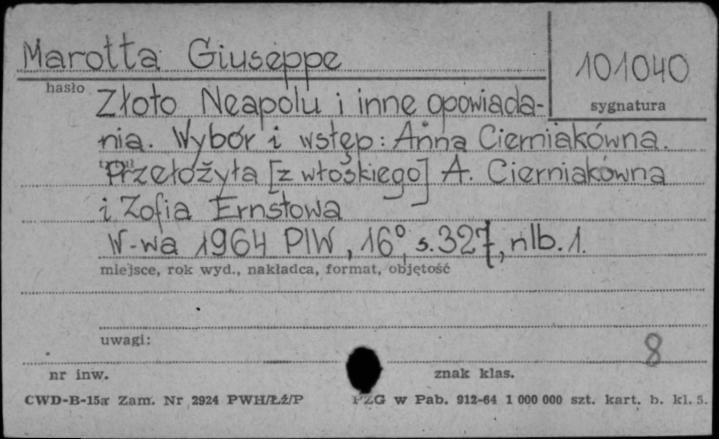 Marotta Giuseppe
101040
hasło
sygnatura
Złoto Neapolu i inne opowiada-
nia. Wybór i wstęp: Anna Cierniakówna.
Przełożyła [z włoskiego] A. Cierniakówna
i Zofia Ernstowa
W-wa 1964 PIW, 16°, s. 327, nlb. 1.
miejsce, rok wyd., nakładca, format, objętość
uwagi:
8
nr inw.
znak klas.
CWD-B-15a Zam. Nr 2924 PWH/Łż/P
PZG w Pab. 912-64 1 000 000 szt. kart. b. kl. 5.